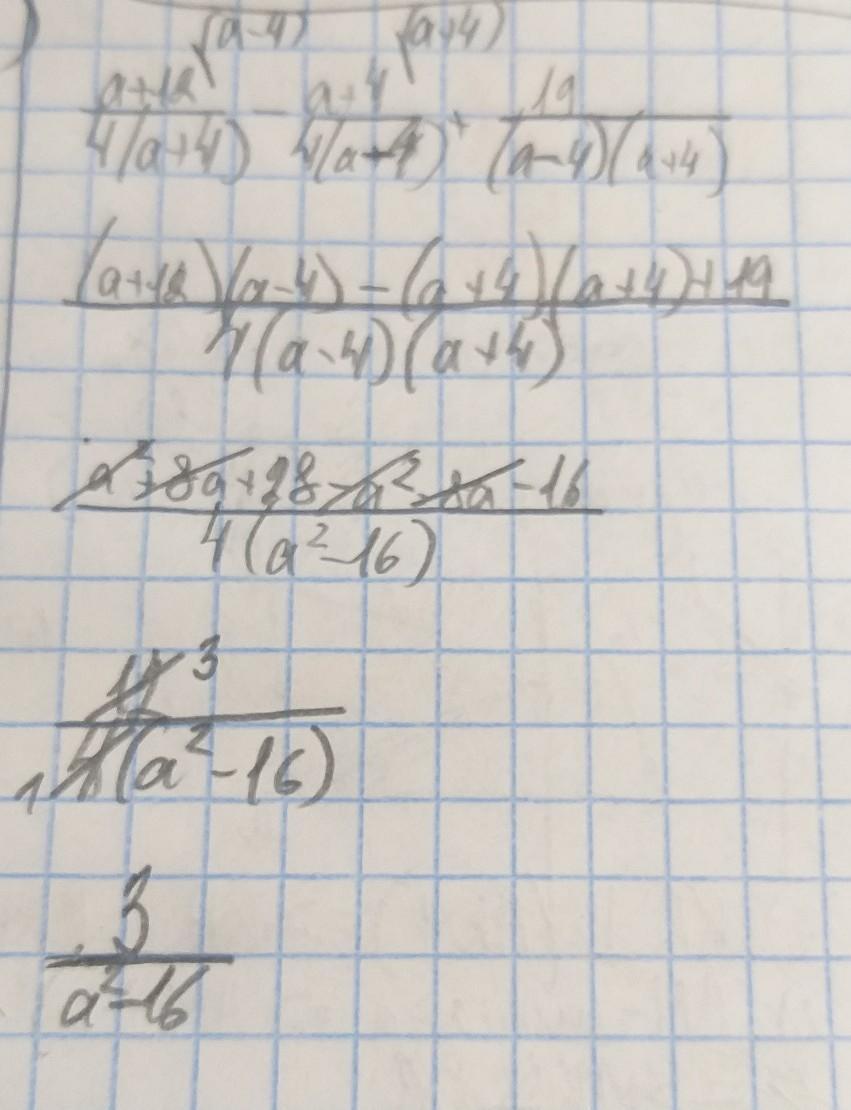 (a-4) (a+4)
a+12 / 4(a+4) - a+4 / 4(a-4) + 19 / (a-4)(a+4)
(a+12)(a-4) - (a+4)(a+4)+19 / 4(a-4)(a+4)
a²+8a+28-a²-8a-16 / 4(a²-16)
3
1 4(a²-16)
3 / a²-16